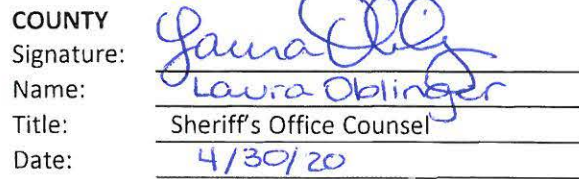 COUNTY
Signature: Laura Obling
Name: Laura Oblinger
Title: Sheriff's Office Counsel
Date: 4/30/20